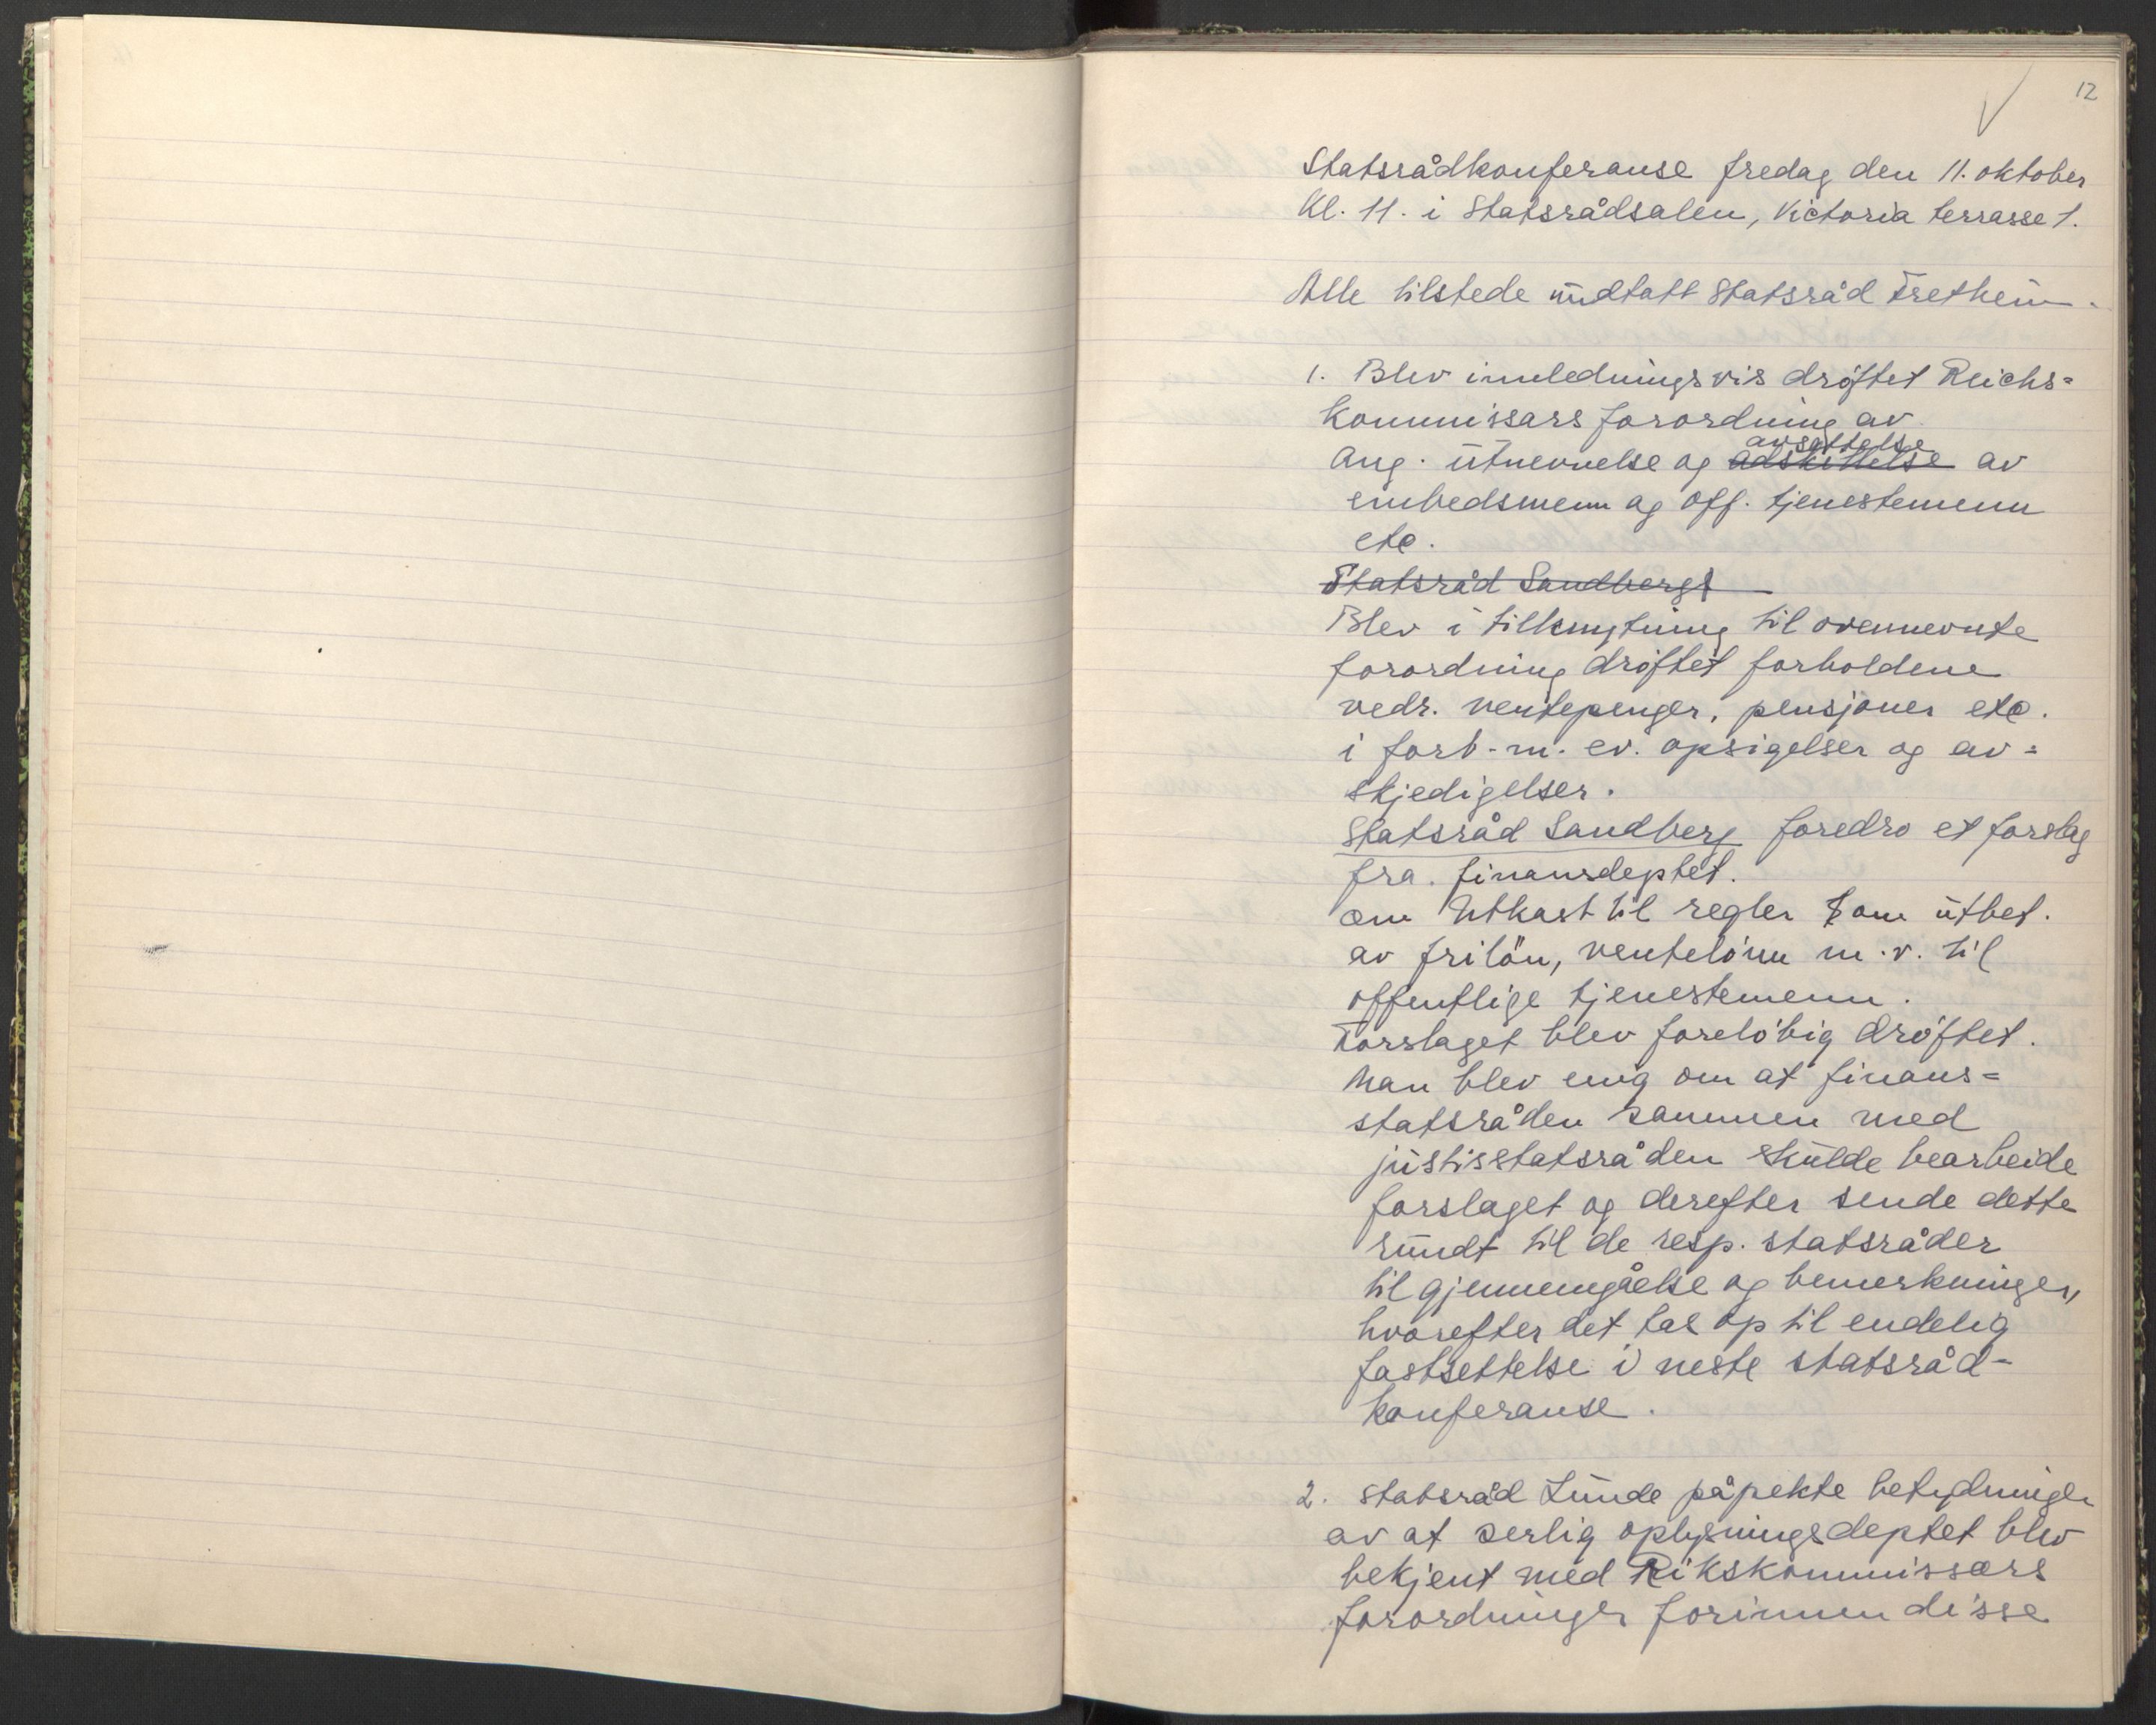 12
Statsrådkonferanse fredag den 11. oktober
kl. 11. i Statsrådsalen, Victoria terrasse 1.
Alle tilstede undtatt Statsråd Fretheim.
1. Blev innledningsvis drøftet Reichs=
kommissars forordning av
avsettelse
ang. utnevnelse og adskillelse av
embedsmenn og off. tjenestemenn
etc.
Statsråd Sandbergs
Blev i tilknytning til ovennevnte
forordning drøftet forholdene
vedr. ventepenger, pensjoner etc.
i forb. m. ev. opsigelser og av=
skjedigelser.
Statsråd Sandberg foredro et forslag
fra finansdeptet.
om Utkast til regler om utbet.
av frilön, ventelönn m.v. til
offentlige tjenestemenn.
Forslaget blev foreløbig drøftet.
Man blev enig om at finans=
statsråden sammen med
justisstatsråden skulde bearbeide
forslaget og derefter sende dette
rundt til de resp. statsråder
til gjennemgåelse og bemerkninger,
hvorefter det tas op til endelig
fastsettelse i neste statsråd-
konferanse.
2. Statsråd Lunde påpekte betydningen
av at serlig oplysningsdeptet blev
bekjent med Rikskommissærs
forordninger forinnen disse